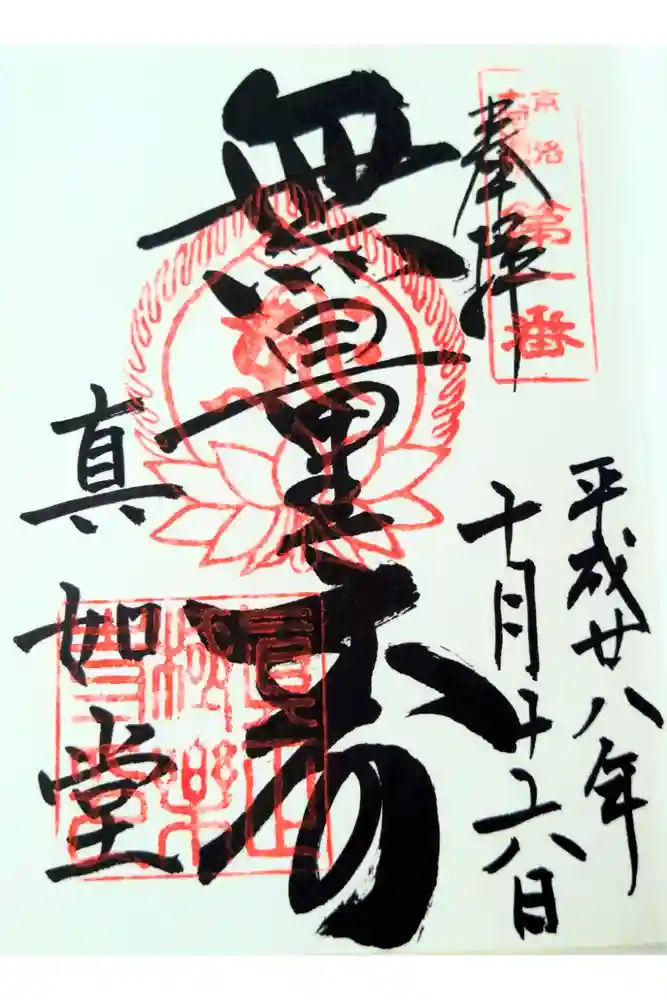 奉拝
京洛
第一番
平成廿八年
十月十六日
無量寿
真如堂
真正
極楽